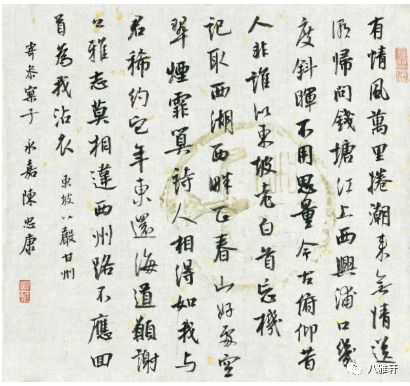 有情風萬里捲潮來無情送
潮歸問錢塘江上西興浦口幾
度斜暉不用思量今古俯仰昔
人非誰似東坡老白首忘機
記取西湖西畔正春山好處空
翠煙霏算詩人相得如我與
君稀約它年東還海道願謝
公雅志莫相違西州路不應回
首為我沾衣 東坡八聲甘州
寄參寥子 永嘉陳忠康
八雅轩